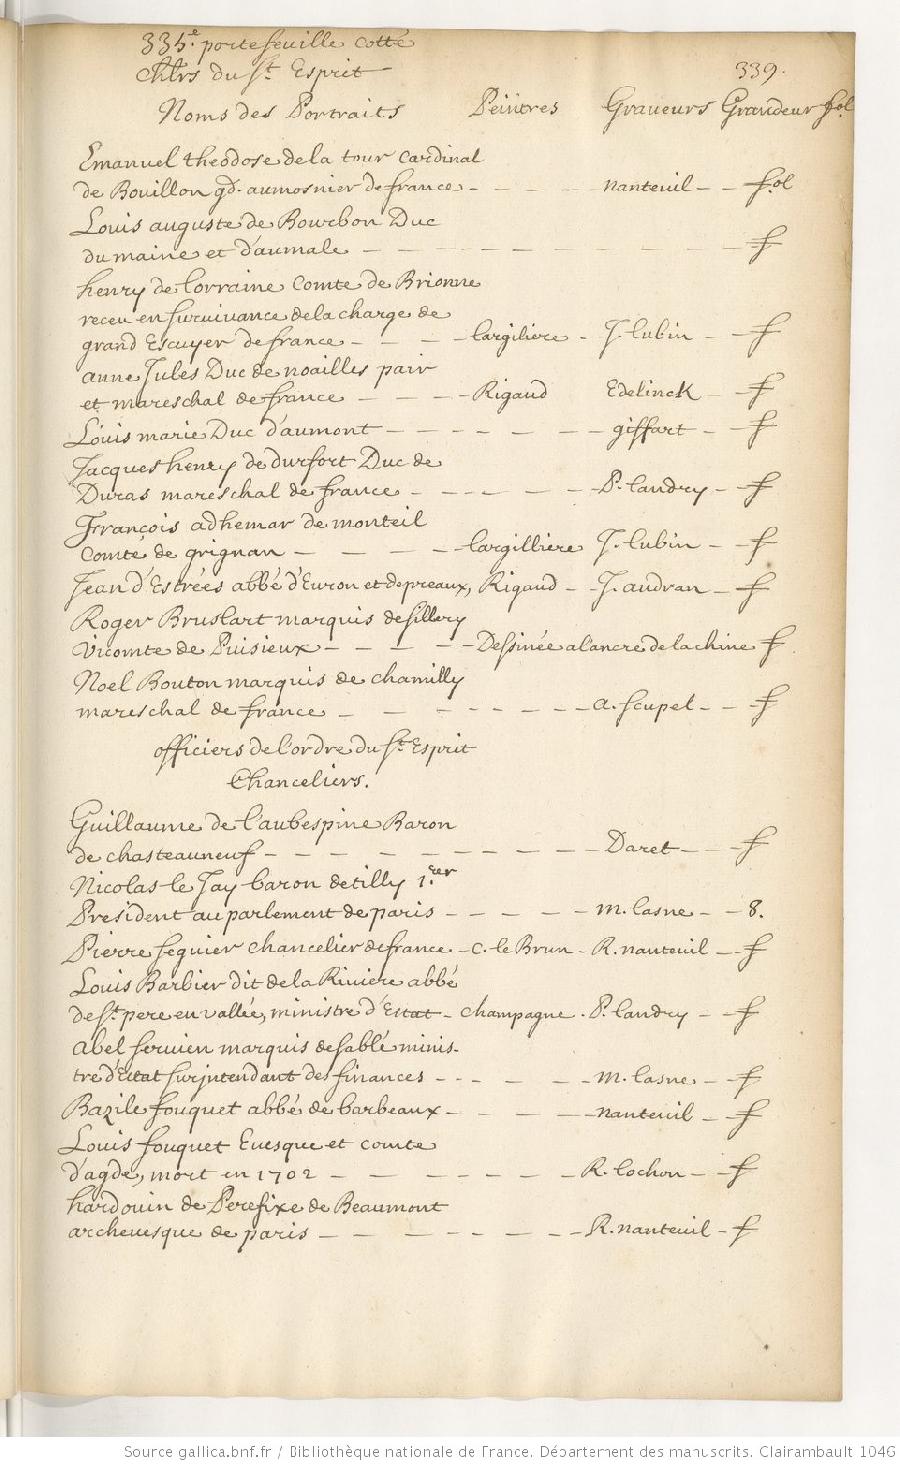 335.e portefeuille cotté
Chlrs du St Esprit
339.
Noms des Portraits Peintres Graveurs Grandeur fol
Emanuel theodose de la tour cardinal
de Bouillon gd. aumosnier de france - - - - nanteuil - - fol
Louis auguste de Bourbon Duc
du maine et d'aumale - - - - - - - - - f
henry de lorraine Comte de Brionne
receu en survivance de la charge de
grand Escuyer de france - - - - largiliere - J. lubin - - f
anne Jules Duc de noailles pair
et mareschal de france - - - - Rigaud Edelinck - - f
Louis marie Duc d'aumont - - - - - - - giffart - - f
Jacques henry de durfort Duc de
Duras mareschal de france - - - - - - P. landry - f
François adhemar de monteil
Comte de grignan - - - - - largilliere J. lubin - - f
Jean d'Estrées abbé d'Evron et de preaux, Rigaud - J. audran - f
Roger Bruslart marquis de sillery
Vicomte de Puisieux - - - - - Dessinée a l'ancre de la chine f
Noel Bouton marquis de chamilly
mareschal de france - - - - - - - a. scupel - - f
officiers de l'ordre du St Esprit
Chanceliers.
Guillaume de l'aubespine Baron
de chasteauneuf - - - - - - - - - Daret - - f
Nicolas le Jay baron de tilly 1.er
President au parlement de paris - - - - - m. lasne - - 8.
Pierre seguier chancelier de france - C. le Brun - R. nanteuil - f
Louis Barbier dit de la Riviere abbé
de St pere en vallée, ministre d'Estat - Champagne - P. landry - - f
Abel servien marquis de sablé minis-
tre d'Etat surintendant des finances - - - - - m. lasne - - f
Bazile fouquet abbé de barbeaux - - - - - nanteuil - - f
Louis fouquet Evesque et comte
d'agde, mort en 1702 - - - - - - - R. lochon - - f
hardouin de Perefixe de Beaumont
archevesque de paris - - - - - - - R. nanteuil - f
Source gallica.bnf.fr / Bibliothèque nationale de France. Département des manuscrits. Clairambault 1046